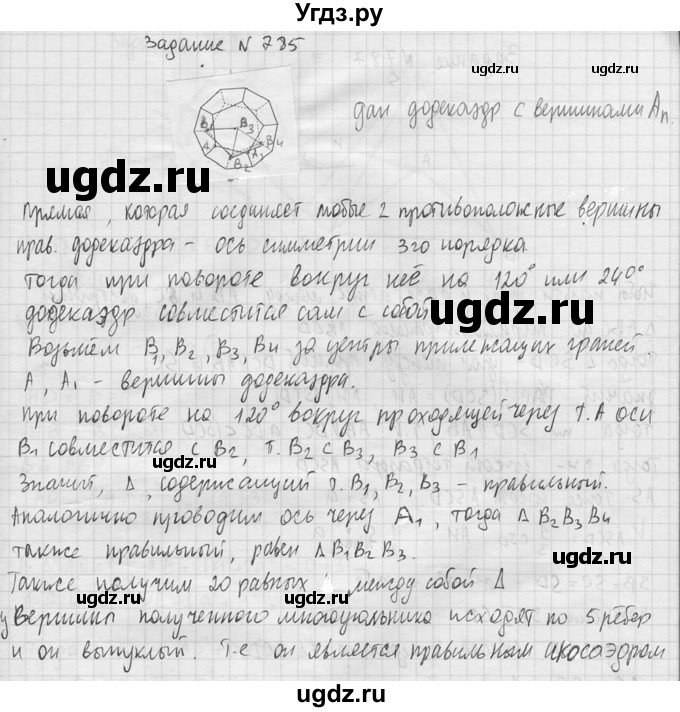 Угдз.ру
Задание N 785
ugdz.ru ugdz.ru
B1 B3 B4
A A1
B2
дан додекаэдр с вершинами An.
ugdz.ru
ugdz.ru
Прямая, которая соединяет любые 2 противоположные вершины
прав. додекаэдра – ось симметрии 3го порядка
Тогда при повороте вокруг неё на 120° или 240°
додекаэдр совместится сам с собой
ugdz.ru ugdz.ru
Возьмём B1, B2, B3, B4 за центры прилежащих граней
A, A1 - вершины додекаэдра.
ugdz.ru
При повороте на 120° вокруг проходящей через т. А оси
B1 совместится с B2, т. B2 с B3, B3 с B1
ugdz.ru
Значит, Δ, содержащий т. B1, B2, B3 – правильный.
Аналогично проводим ось через A1, тогда Δ B2B3B4
также правильный, равен Δ B1B2B3.
ugdz.ru
Также получим 20 равных между собой Δ
ugdz.ru ugdz.ru
У вершины полученного многоугольника исходят по 5 рёбер
и он выпуклый. Т-е он является правильным икосаэдром
ugdz.ru